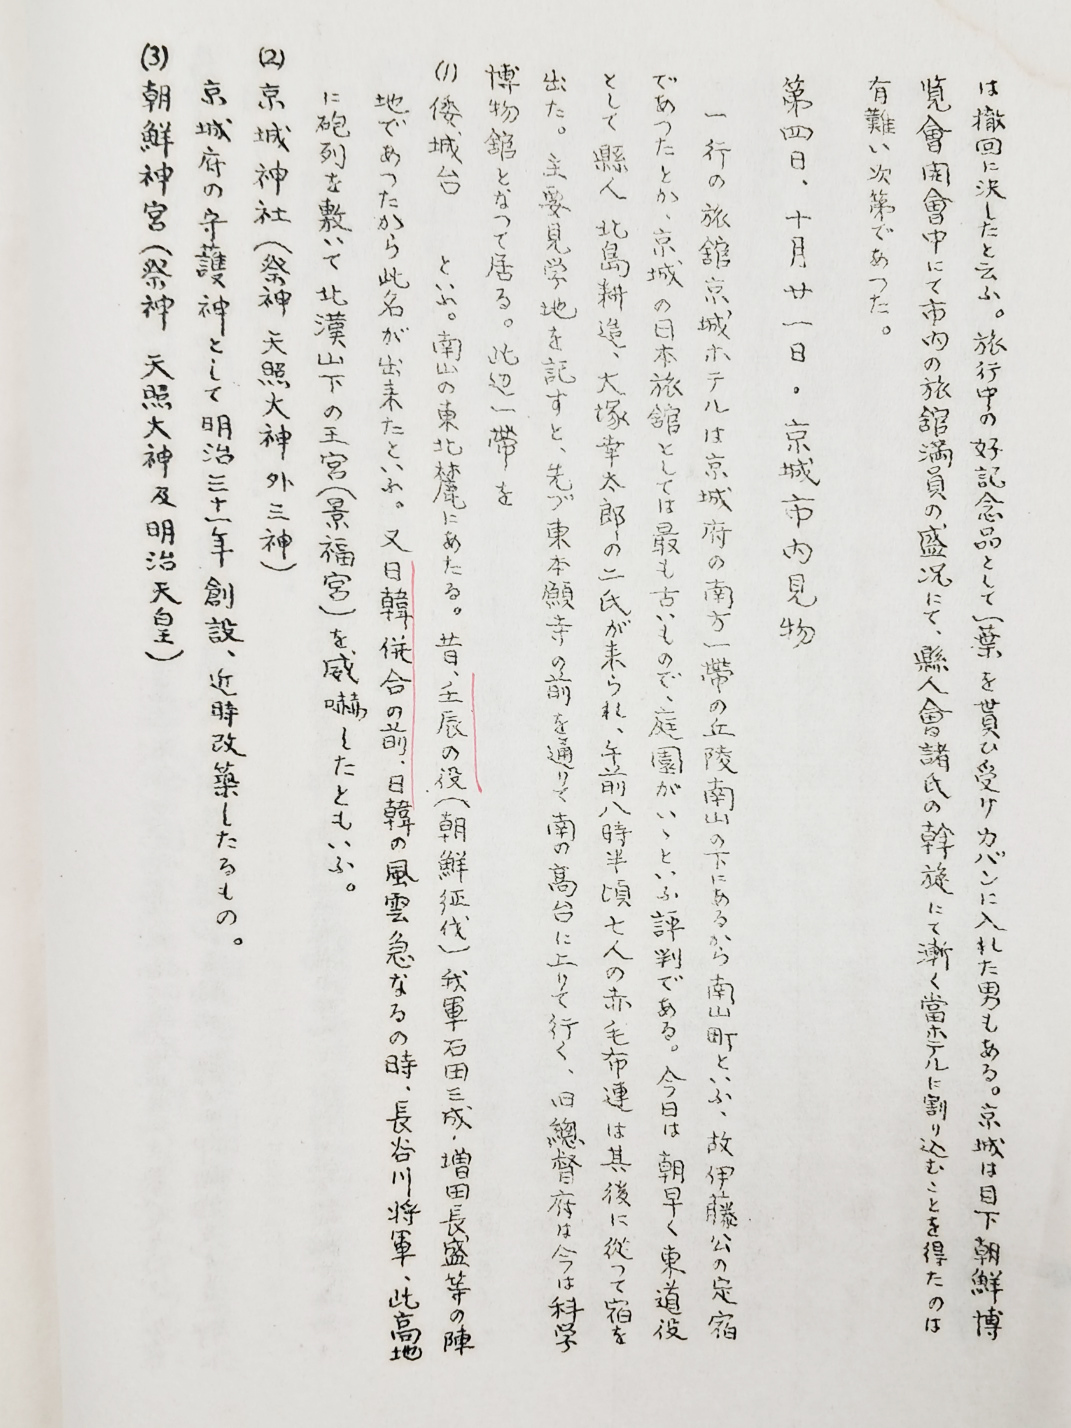 は撤回に決したと云ふ。旅行中の好記念品として一葉を貰ひ受けカバンに入れた男もある。京城は目下朝鮮博
覧會開會中にて市内の旅舘満員の盛况にて、縣人會諸氏の幹旋にて漸く當ホテルに割り込むことを得たのは
有難い次第であつた。
第四日、十月廿一日。京城市内見物
一行の旅舘京城ホテルは京城府の南方一帶の丘陵南山の下にあるから南山町といふ、故伊藤公の定宿
であつたとか、京城の日本旅舘としては最も古いもので、庭園がいゝといふ評判である。今日は朝早く東道役
として縣人北島耕造、大塚幸太郎の二氏が来られ、午前八時半頃七人の赤毛布連は其後に從つて宿を
出た。主要見学地を記すと、先づ東本願寺の前を通りて南の高台に上りて行く、旧總督府は今は科学
博物舘となつて居る。此辺一帶を
(1) 倭城台 といふ。南山の東北麓にあたる。昔、壬辰の役(朝鮮征伐)我軍石田三成・増田長盛等の陣
地であつたから此名が出来たといふ。又日韓併合の前、日韓の風雲急なるの時、長谷川将軍、此高地
に砲列を敷いて北漢山下の王宮(景福宮)を威嚇したともいふ。
(2) 京城神社(祭神 天照大神外三神)
京城府の守護神として明治三十一年創設、近時改築したるもの。
(3) 朝鮮神宮(祭神 天照大神及明治天皇)